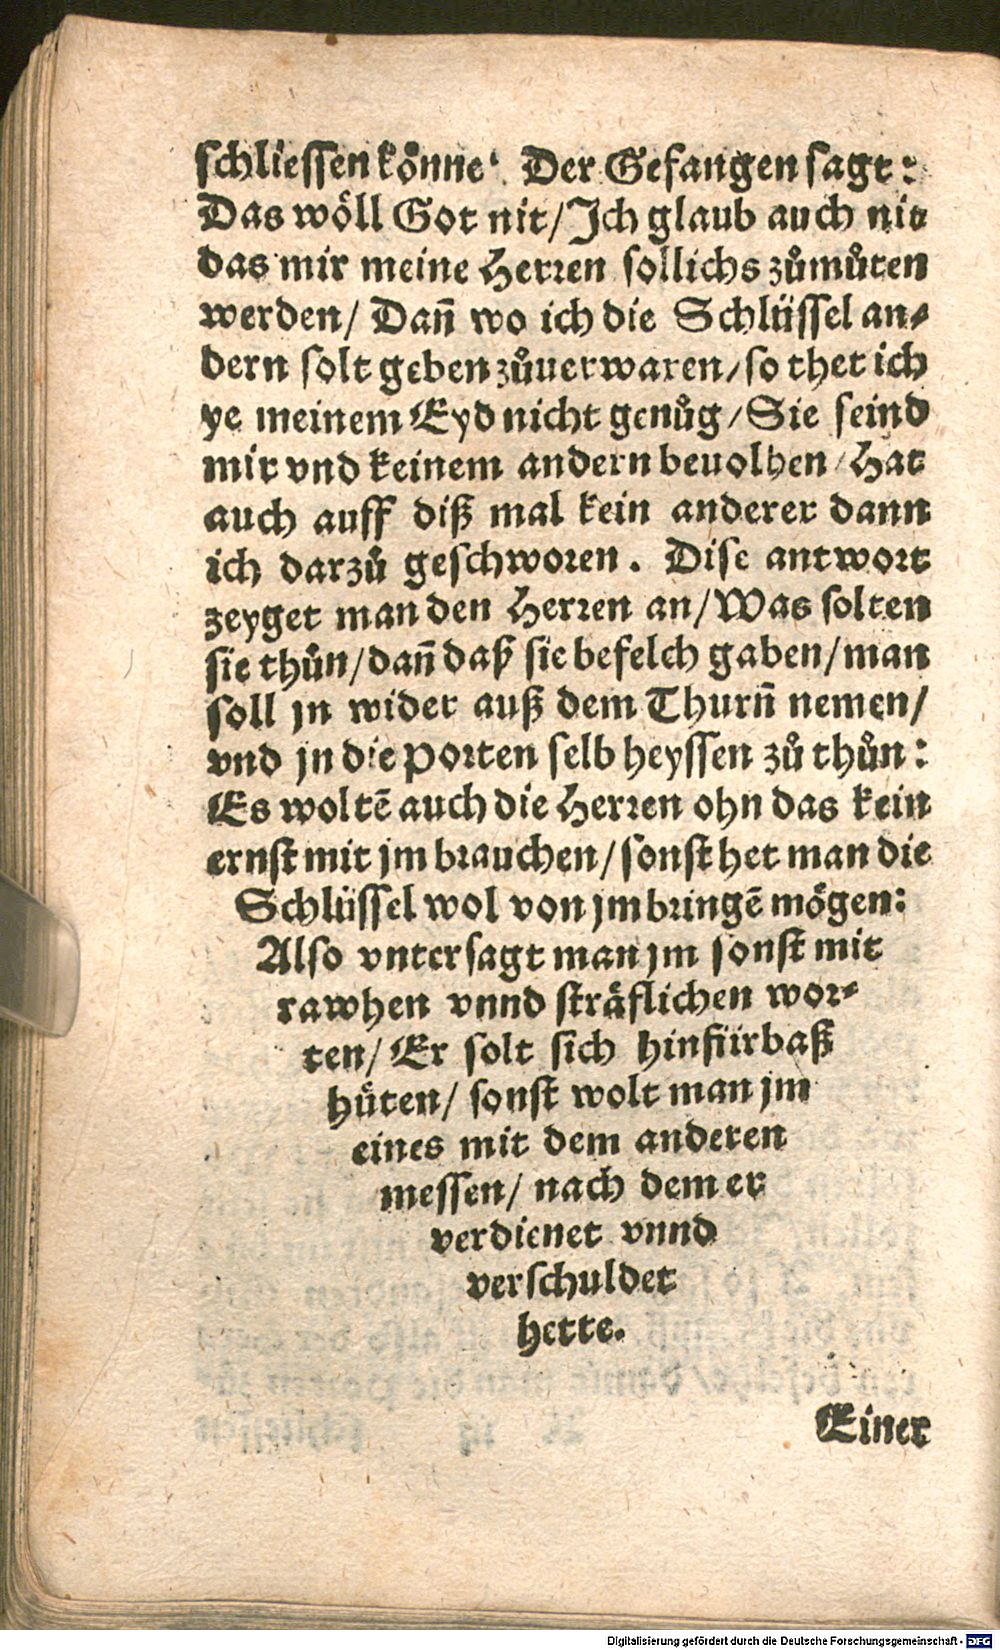 schliessen könne. Der Gefangen sagt:
Das wöll Got nit/ Ich glaub auch nit
das mir meine Herren sollichs zůmůten
werden/ Dañ wo ich die Schlüssel an-
dern solt geben zůuerwaren/ so thet ich
ye meinem Eyd nicht genůg/ Sie seind
mir vnd keinem andern beuolhen/ Hat
auch auff diß mal kein anderer dann
ich darzů geschworen. Dise antwort
zeyget man den Herren an/ Was solten
sie thůn/ dañ daß sie befelch gaben/ man
soll jn wider auß dem Thurñ nemen/
vnd jn die Porten selb heyssen zů thůn:
Es woltẽ auch die Herren ohn das kein
ernst mit jm brauchen/ sonst het man die
Schlüssel wol von jm bringẽ mögen:
Also vntersagt man jm sonst mit
rawhen vnnd sträflichen wor-
ten/ Er solt sich hinfürbaß
hüten/ sonst wolt man jm
eines mit dem anderen
messen/ nach dem er
verdienet vnnd
verschuldet
hette.
Einer
Digitalisierung gefördert durch die Deutsche Forschungsgemeinschaft - DFG